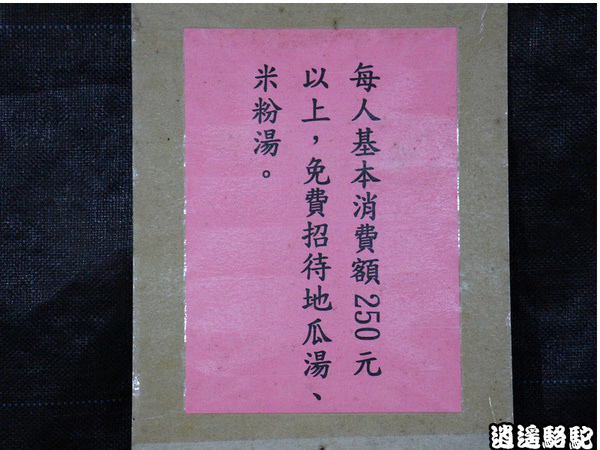 每人基本消費額250元
以上，免費招待地瓜湯、
米粉湯。
逍遙駱駝